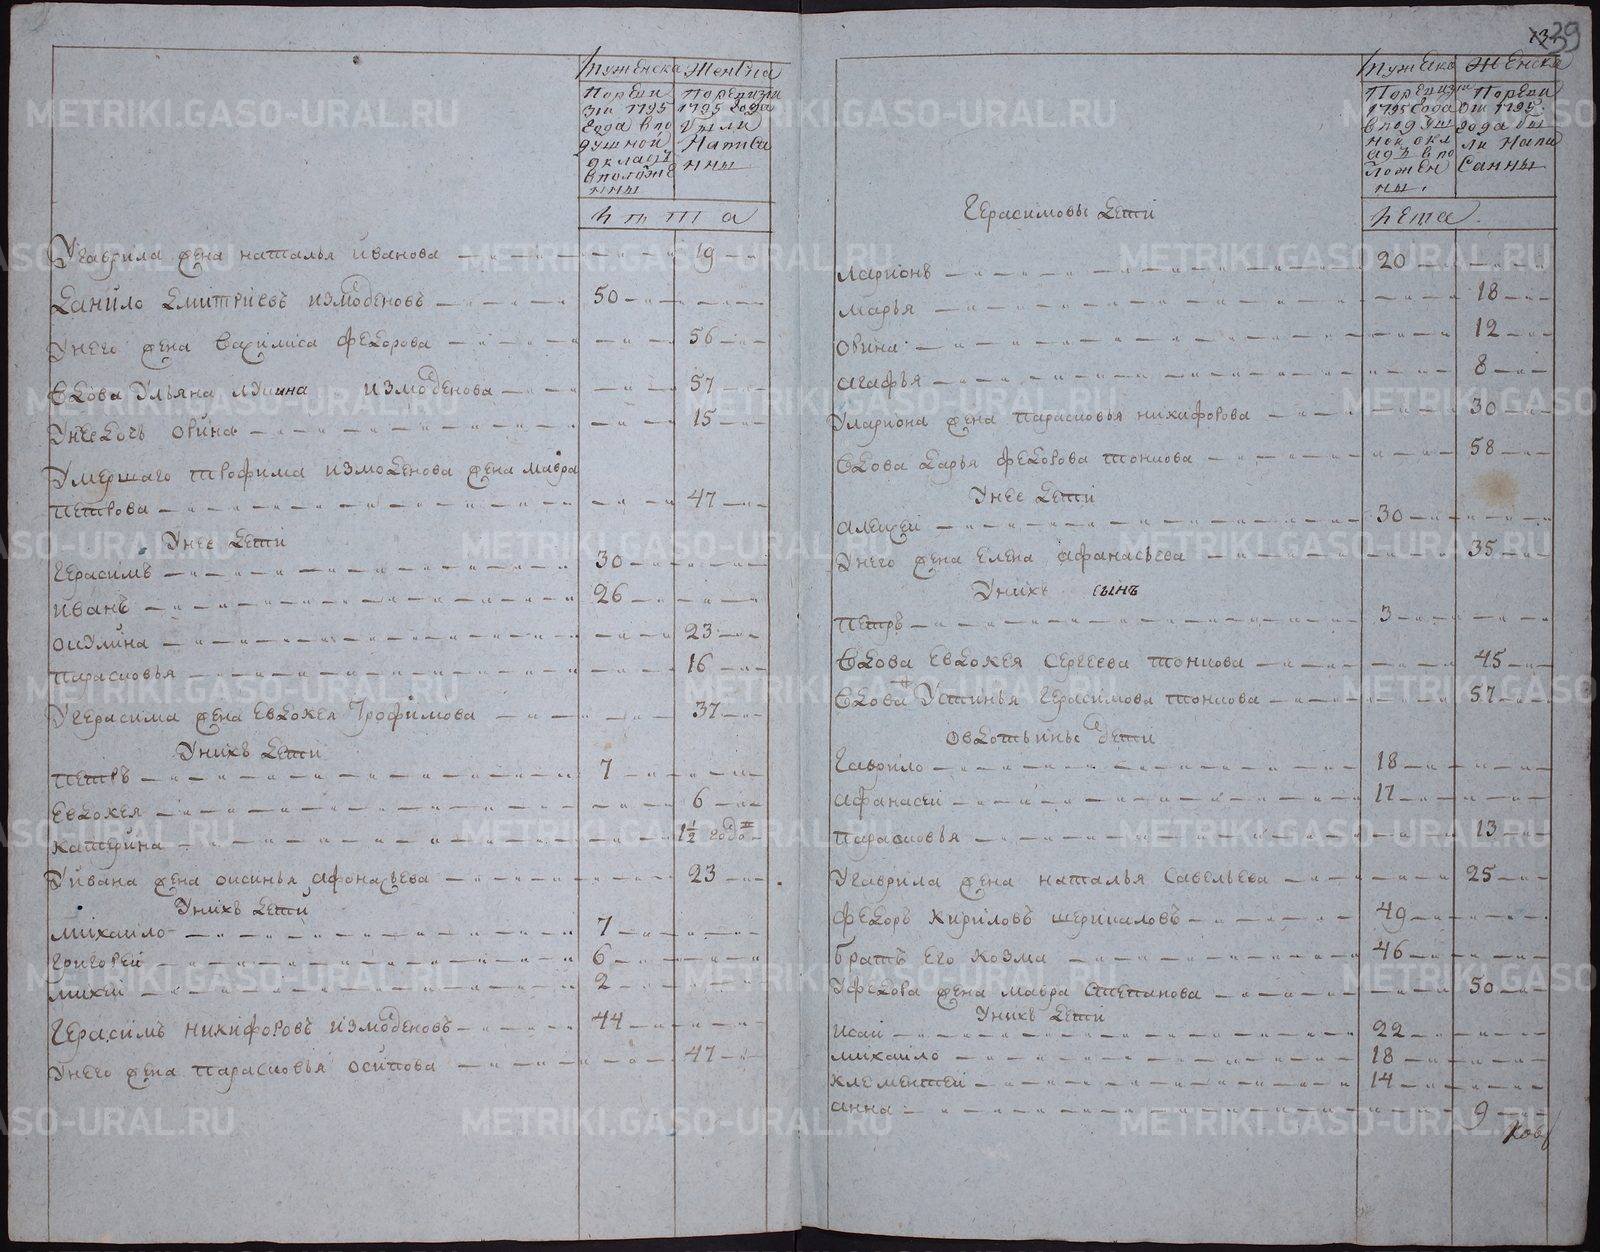 Мужеска Женска
По реви
зіи 1795
года в по
душной
окладъ
в положе
нны
По ревизіи
1795 года
были
Написа
нны
Лѣта
У гаврила жена наталья иванова 19
Данило Дмитріевъ измоденовъ 50
У него жена Васились Федорова 56
Вдова Ульяна измоденова 57
У нее дочь 15
Умершаго трофима измоденова жена мавра
петрова 47
У нее дети
герасимъ 30
иванъ 26
окулина 23
парасковья 16
У герасима жена Евдокея Трофимова 37
У нихъ дети
петръ 7
Евдокея 6
катерина 1½ года
У ивана жена оксинья афонасьева 23
У нихъ дети
михаило 7
григорей 6
михей 2
герасимъ никифоровъ измоденовъ 44
У него жена парасковья осипова 47
39
Мужеска Женска
По ревизіи
1795 года
в подуш
ной окл
адъ в по
ложен
ны.
По реви
зіи 1795
года бы
ли Напи
Санны
Лета
Герасимовы Дети
ларионъ 20
марья 18
12
агафья 8
У лариона жена парасковья никифорова 30
Вдова Дарья Федорова тонкова 58
У нее Дети
алексей 30
У него жена Елена афанасьева 35
У нихъ сынъ
петръ 3
Вдова Евдокея Сергеева тонкова 45
Вдова Устинья герасимова тонкова 57
Овдотьины дети
гаврило 18
афанасеи 17
парасковья 13
У гаврила жена наталья Савельева 25
Федоръ Кириловъ 49
братъ Его козма 46
У Федора жена мавра Степанова 50
У нихъ дети
исаи 22
михаило 18
клементеи 14
анна 9